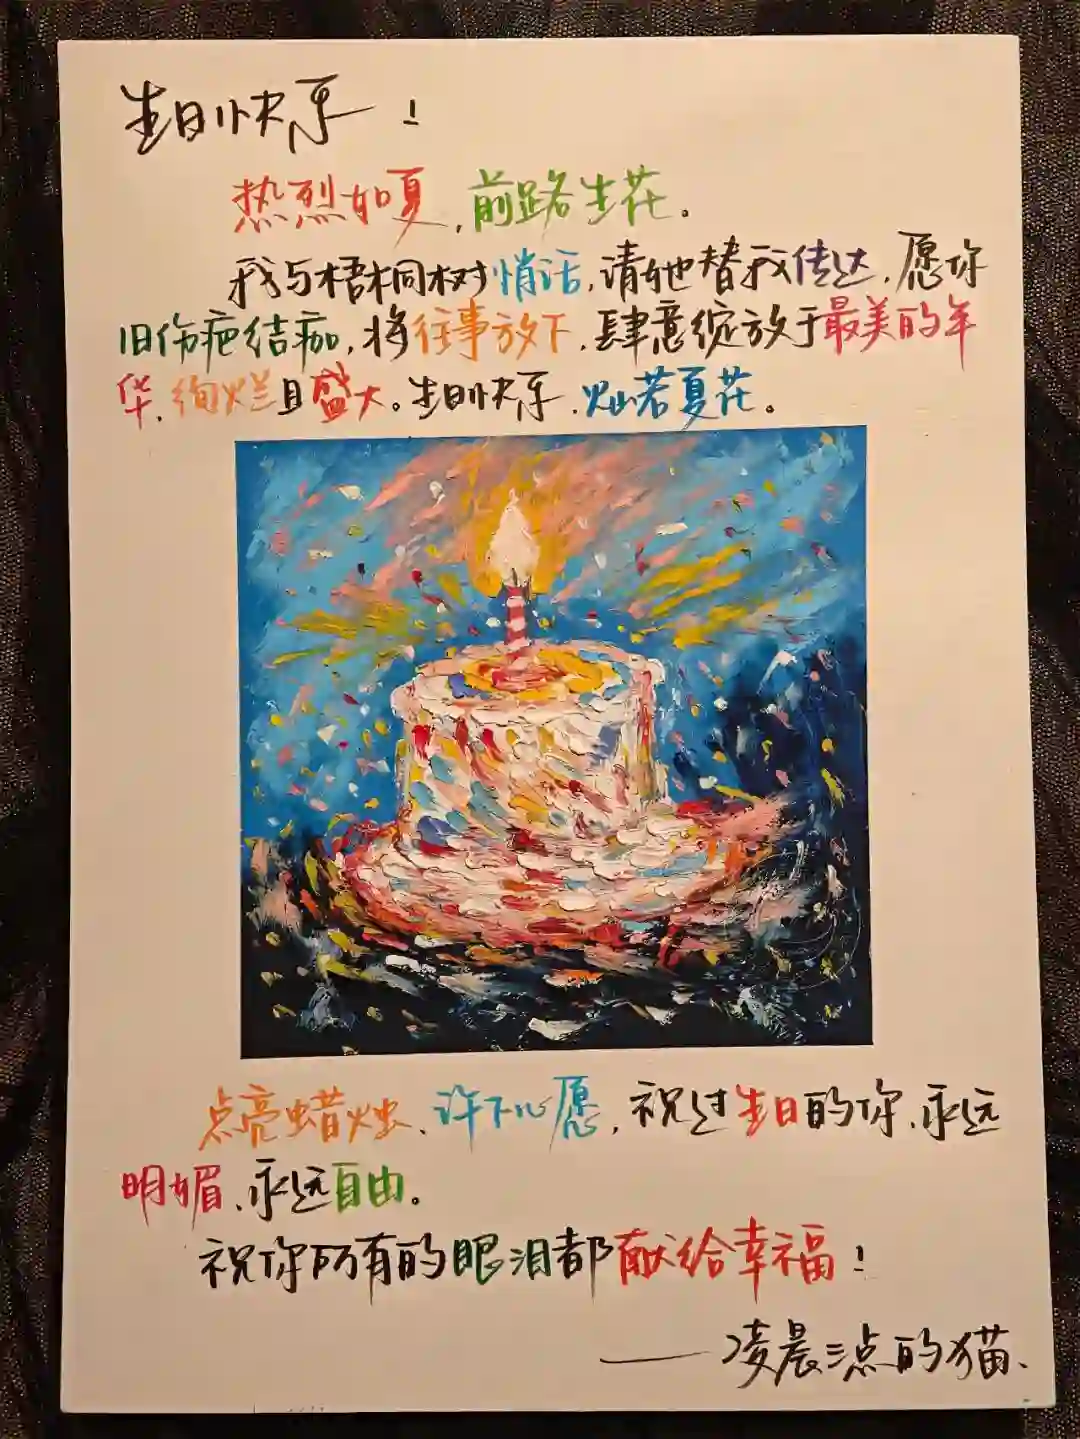 生日快乐！
热烈如夏，前路生花。
我与梧桐树悄话，请她替我传达，愿你
旧伤疤结痂，将往事放下，肆意绽放于最美的年
华，绚烂且盛大。生日快乐，灿若夏花。
点亮蜡烛、许下心愿，祝过生日的你、永远
明媚、永远自由。
祝你所有的眼泪都献给幸福！
——凌晨三点的猫、